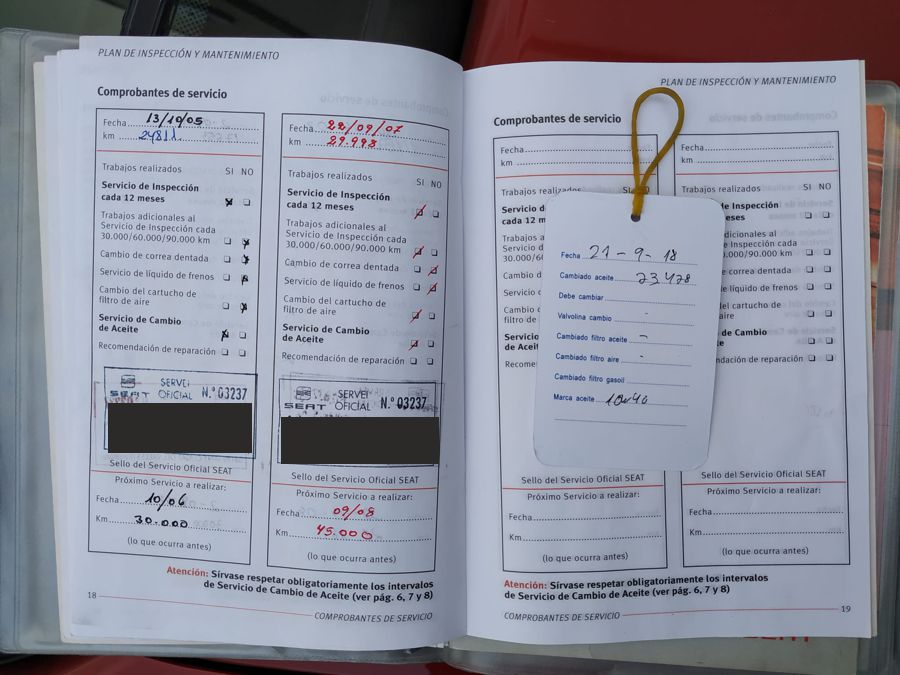 PLAN DE INSPECCIÓN Y MANTENIMIENTO
Comprobantes de servicio
Fecha 13/10/05
km 24811
Trabajos realizados SI NO
Servicio de Inspección
cada 12 meses
Trabajos adicionales al
Servicio de Inspección cada
30.000/60.000/90.000 km
Cambio de correa dentada
Servicio de líquido de frenos
Cambio del cartucho de
filtro de aire
Servicio de Cambio
de Aceite
Recomendación de reparación
SEAT SERVEI OFICIAL N.º 03237
Sello del Servicio Oficial SEAT
Próximo Servicio a realizar:
Fecha 10/06
Km 30.000
(lo que ocurra antes)
Fecha 22/09/07
km 29.998
Trabajos realizados SI NO
Servicio de Inspección
cada 12 meses
Trabajos adicionales al
Servicio de Inspección cada
30.000/60.000/90.000 km
Cambio de correa dentada
Servicio de líquido de frenos
Cambio del cartucho de
filtro de aire
Servicio de Cambio
de Aceite
Recomendación de reparación
SEAT SERVEI OFICIAL N.º 03237
Sello del Servicio Oficial SEAT
Próximo Servicio a realizar:
Fecha 09/08
Km 45.000
(lo que ocurra antes)
Atención: Sírvase respetar obligatoriamente los intervalos
de Servicio de Cambio de Aceite (ver pág. 6, 7 y 8)
18
COMPROBANTES DE SERVICIO
PLAN DE INSPECCIÓN Y MANTENIMIENTO
Comprobantes de servicio
Fecha
km
Trabajos realizados SI NO
Servicio d
cada 12 m
Trabajos a
Servicio d
30.000/6
Cambio d
Servicio d
Cambio d
filtro de a
Servicio
de Aceit
Recome
Fecha 21-9-18
Cambiado aceite 23478
Debe cambiar
Valvolina cambio -
Cambiado filtro aceite -
Cambiado filtro aire -
Cambiado filtro gasoil
Marca aceite 10w40
Sello del Servicio Oficial SEAT
Próximo Servicio a realizar:
Fecha
Km
(lo que ocurra antes)
Fecha
km
Trabajos realizados SI NO
de Inspección
meses
adicionales al
de Inspección cada
60.000/90.000 km
de correa dentada
de líquido de frenos
del cartucho de
aire
de Cambio
endación de reparación
Sello del Servicio Oficial SEAT
Próximo Servicio a realizar:
Fecha
Km
(lo que ocurra antes)
Atención: Sírvase respetar obligatoriamente los intervalos
de Servicio de Cambio de Aceite (ver pág. 6, 7 y 8)
COMPROBANTES DE SERVICIO
19